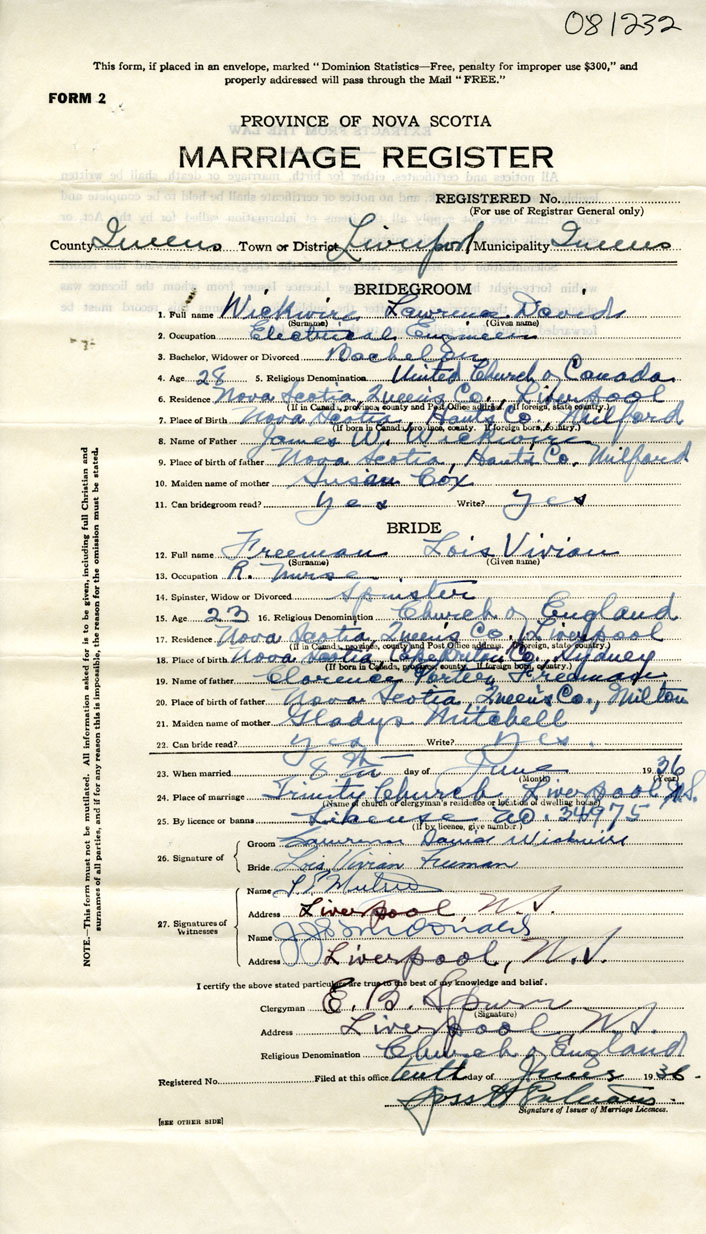 081232
This form, if placed in an envelope, marked "Dominion Statistics—Free, penalty for improper use $300," and
properly addressed will pass through the Mail "FREE."
FORM 2
PROVINCE OF NOVA SCOTIA
MARRIAGE REGISTER
REGISTERED No.
(For use of Registrar General only)
County Queens Town or District Liverpool Municipality Queens
BRIDEGROOM
1. Full name Wickwire Lawrence David
(Surname) (Given name)
2. Occupation Electrical Engineer
3. Bachelor, Widower or Divorced Bachelor
4. Age 28 5. Religious Denomination United Church o Canada
6. Residence Nova Scotia, Queen's Co., Liverpool
(If in Canada, province, county and Post Office address. If foreign, state country.)
7. Place of Birth Nova Scotia, Hants Co. Milford
(If born in Canada, province, county. If foreign born, country.)
8. Name of Father James W. Wickwire
9. Place of birth of father Nova Scotia, Hants Co. Milford
10. Maiden name of mother Susan Cox
11. Can bridegroom read? yes Write? yes
BRIDE
12. Full name Freeman Lois Vivian
(Surname) (Given name)
13. Occupation R. Nurse
14. Spinster, Widow or Divorced Spinster
15. Age 23 16. Religious Denomination Church o England
17. Residence Nova Scotia, Queen's Co., Liverpool
(If in Canada, province, county and Post Office address. If foreign, state country.)
18. Place of birth Nova Scotia, Cape Breton Co. Sydney
(If born in Canada, province, county. If foreign born, country.)
19. Name of father Clarence Porter Freeman
20. Place of birth of father Nova Scotia, Queen's Co., Milton
21. Maiden name of mother Gladys Mitchell
22. Can bride read? yes Write? yes.
23. When married 8th day of June 1936
(Month) (Year)
24. Place of marriage Trinity Church Liverpool N.S.
(Name of church or clergyman's residence or location of dwelling house)
25. By licence or banns License no. 34975
(If by licence, give number.)
26. Signature of
Groom Lawrence David Wickwire
Bride Lois Vivian Freeman
27. Signatures of Witnesses
Name
Address Liverpool N.S.
Name McDonald
Address Liverpool, N.S.
I certify the above stated particulars are true to the best of my knowledge and belief.
Clergyman E. B. Spurr
(Signature)
Address Liverpool N.S.
Religious Denomination Church o England
Registered No. Filed at this office tenth day of June 1936.
Signature of Issuer of Marriage Licences.
[SEE OTHER SIDE]
NOTE.—This form must not be mutilated. All information asked for is to be given, including full Christian and
surnames of all parties, and if for any reason this is impossible, the reason for the omission must be stated.